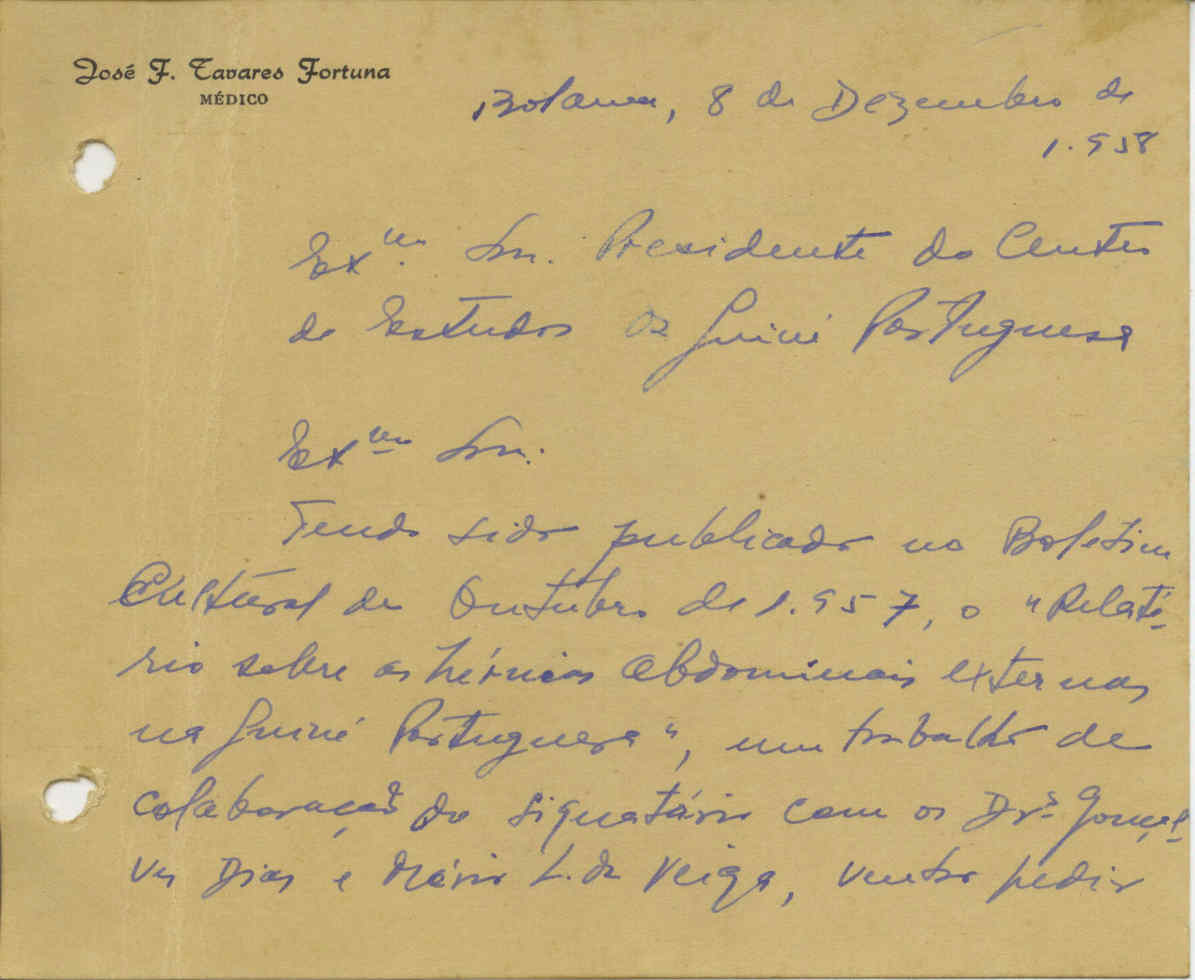 José F. Tavares Fortuna
MÉDICO
Bolama, 8 de Dezembro de
1.958
Exmo. Snr. Presidente do Centro
de Estudos da Guiné Portuguesa
Exmo Snr.
Tendo sido publicado no Boletim
Cultural de Outubro de 1.957, o "Relató-
rio sobre as hérnias abdominais externas
na Guiné Portuguesa", um trabalho de
colaboração do signatário com os Drs. Gonçal-
ves Dias e Mário L. da Veiga, venho pedir